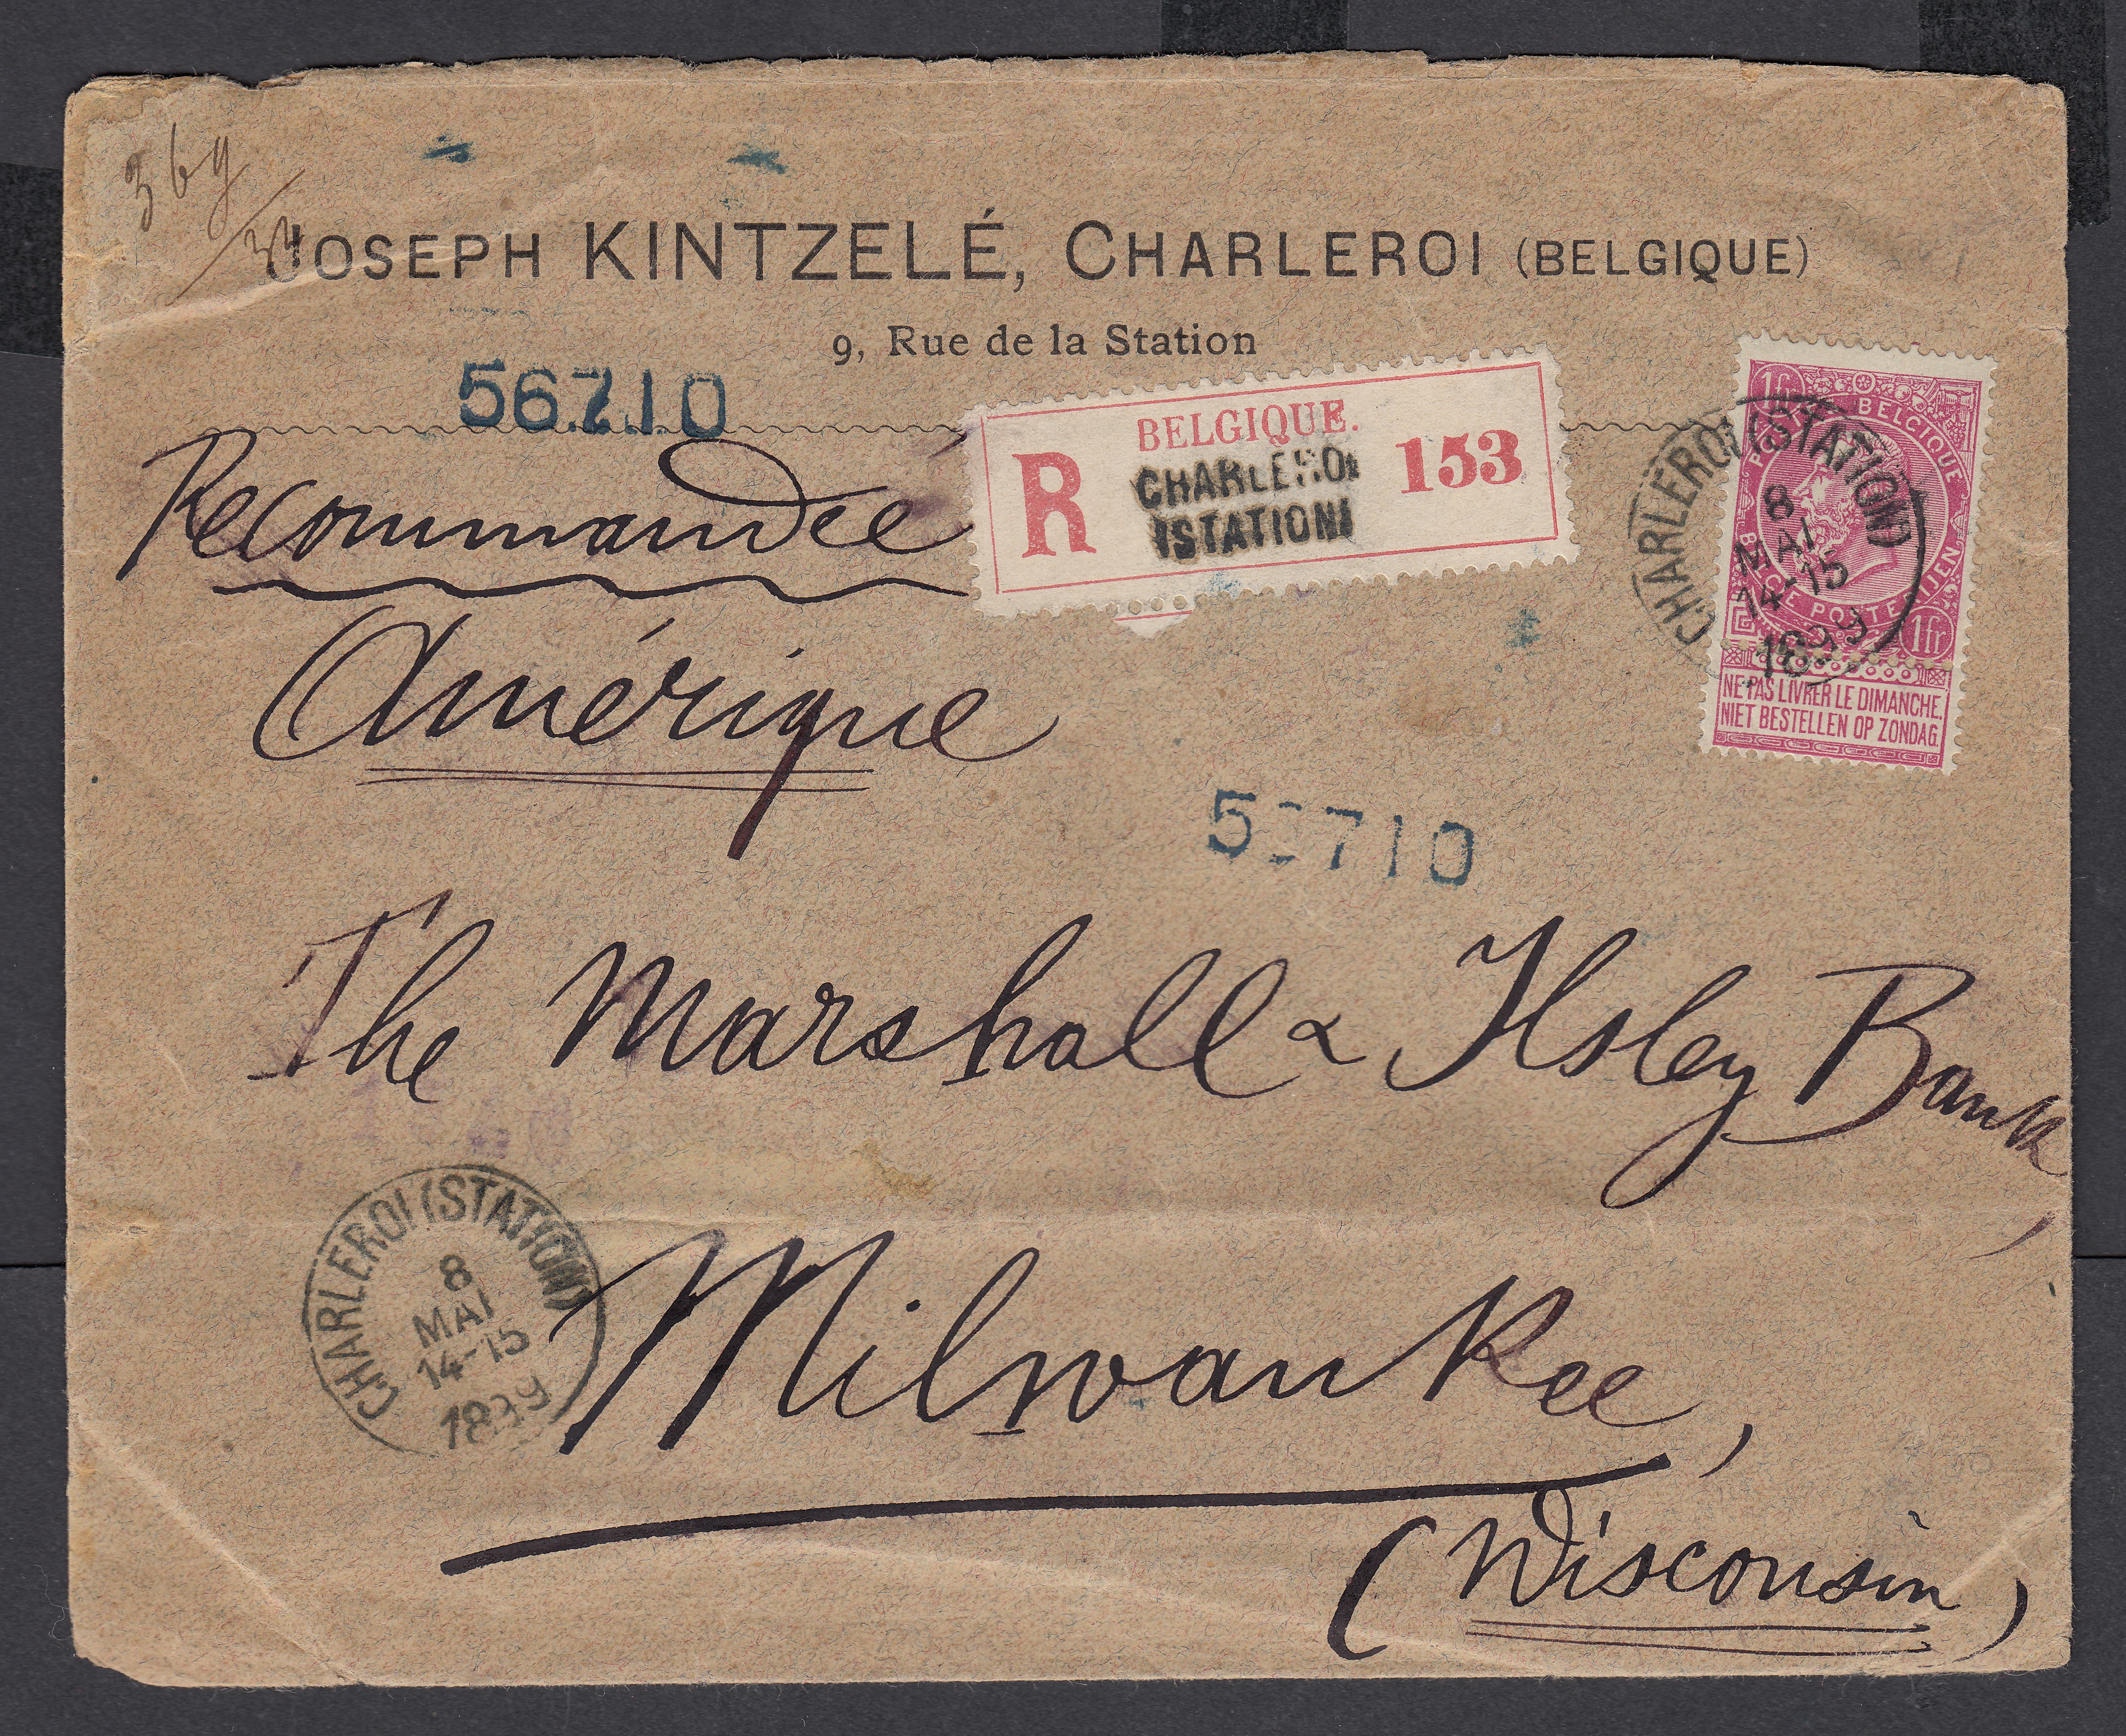 36g
/33
JOSEPH KINTZELÉ, CHARLEROI (BELGIQUE)
9, Rue de la Station
56710
BELGIQUE.
R
CHARLEROI
(STATION)
153
Recommandée
Amérique
1fr
POSTES BELGIQUE
BELGIE POSTERIJEN
1fr
NE PAS LIVRER LE DIMANCHE.
NIET BESTELLEN OP ZONDAG.
CHARLEROI (STATION)
8
MAI
14-15
1899
56710
The Marshall & Ilsley Bank,
CHARLEROI (STATION)
8
MAI
14-15
1899
Milwaukee,
(Wisconsin)